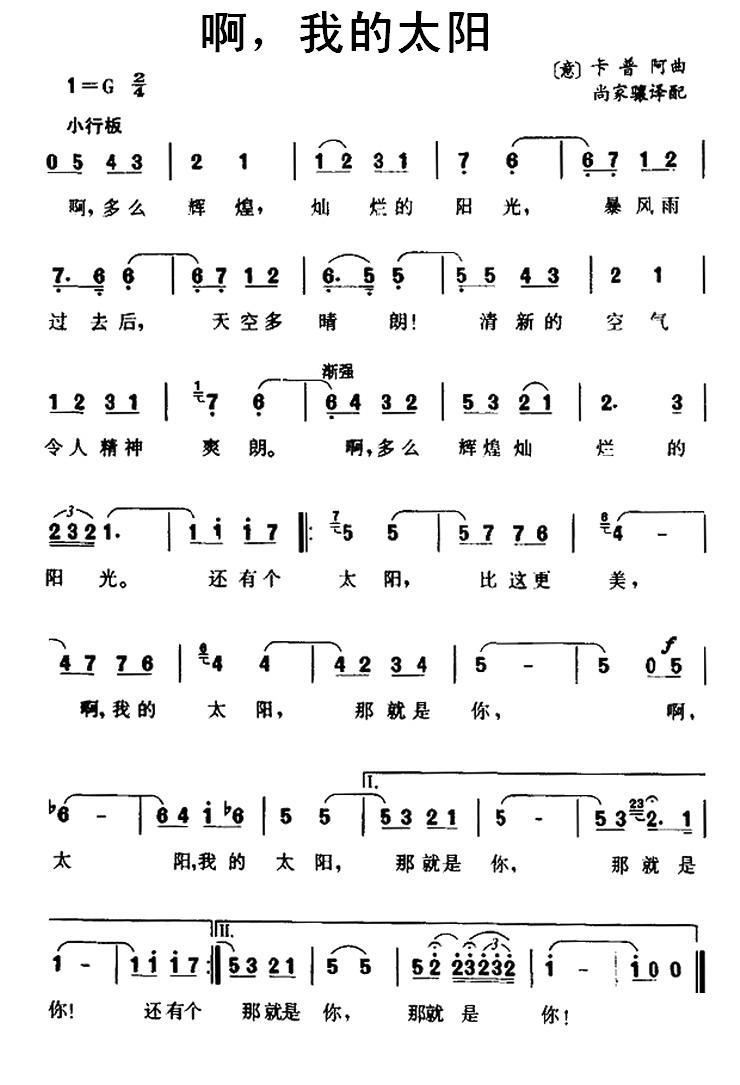 啊，我的太阳
1=G 2/4
〔意〕卡普阿曲
尚家骧译配
小行板
0 5 4 3 | 2 1 | 1 2 3 1 | 7 6 | 6 7 1 2 |
啊，多么 辉 煌， 灿 烂的 阳 光， 暴风雨
7. 6 6 | 6 7 1 2 | 6. 5 5 | 5 5 4 3 | 2 1 |
过去后， 天空多 晴 朗！ 清新的 空 气
渐强
1 2 3 1 | 1 7 6 | 6 4 3 2 | 5 3 2 1 | 2. 3 |
令人精神 爽 朗。 啊，多么 辉煌灿 烂 的
3
2 3 2 1. | 1 1 1 7 |: 7 5 5 | 5 7 7 6 | 6 4 - |
阳 光。 还有个 太 阳， 比这更 美，
4 7 7 6 | 6 4 4 | 4 2 3 4 | 5 - | 5 0 5 |
f
啊，我的 太 阳， 那就是 你， 啊，
I.
♭6 - | 6 4 1 ♭6 | 5 5 | 5 3 2 1 | 5 - | 5 3 23 2. 1 |
太 阳，我的 太 阳， 那就是 你， 那就是
II.
1 - | 1 1 1 7 :| 5 3 2 1 | 5 5 | 5 2 2 3 2 3 2 | 1 - | 1 0 0 |
3
你！ 还有个 那就是 你， 那就 是 你！